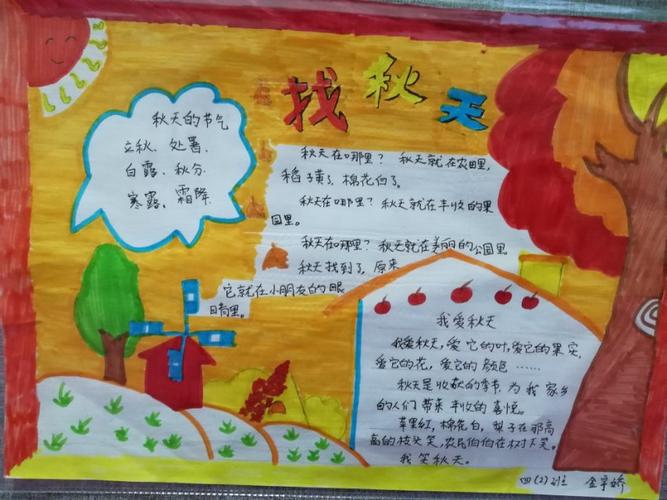 找秋天
秋天的节气
立秋、处暑、
白露、秋分、
寒露、霜降
秋天在哪里？ 秋天就在农田里，
稻子黄了，棉花白了。
秋天在哪里？秋天就在丰收的果
园里。
秋天在哪里？秋天就在美丽的公园里
秋天找到了，原来
它就在小朋友的眼
睛里。
我爱秋天
我爱秋天，爱它的叶，爱它的果实，
爱它的花，爱它的颜色……
秋天是收获的季节，为我家乡
的人们带来丰收的喜悦。
苹果红，棉花白，梨子在那高
高的枝头笑，农民伯伯在树下笑。
我笑秋天。
四(2)班 金宇娇